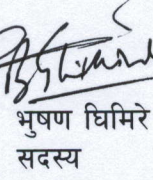 भुषण घिमिरे
सदस्य